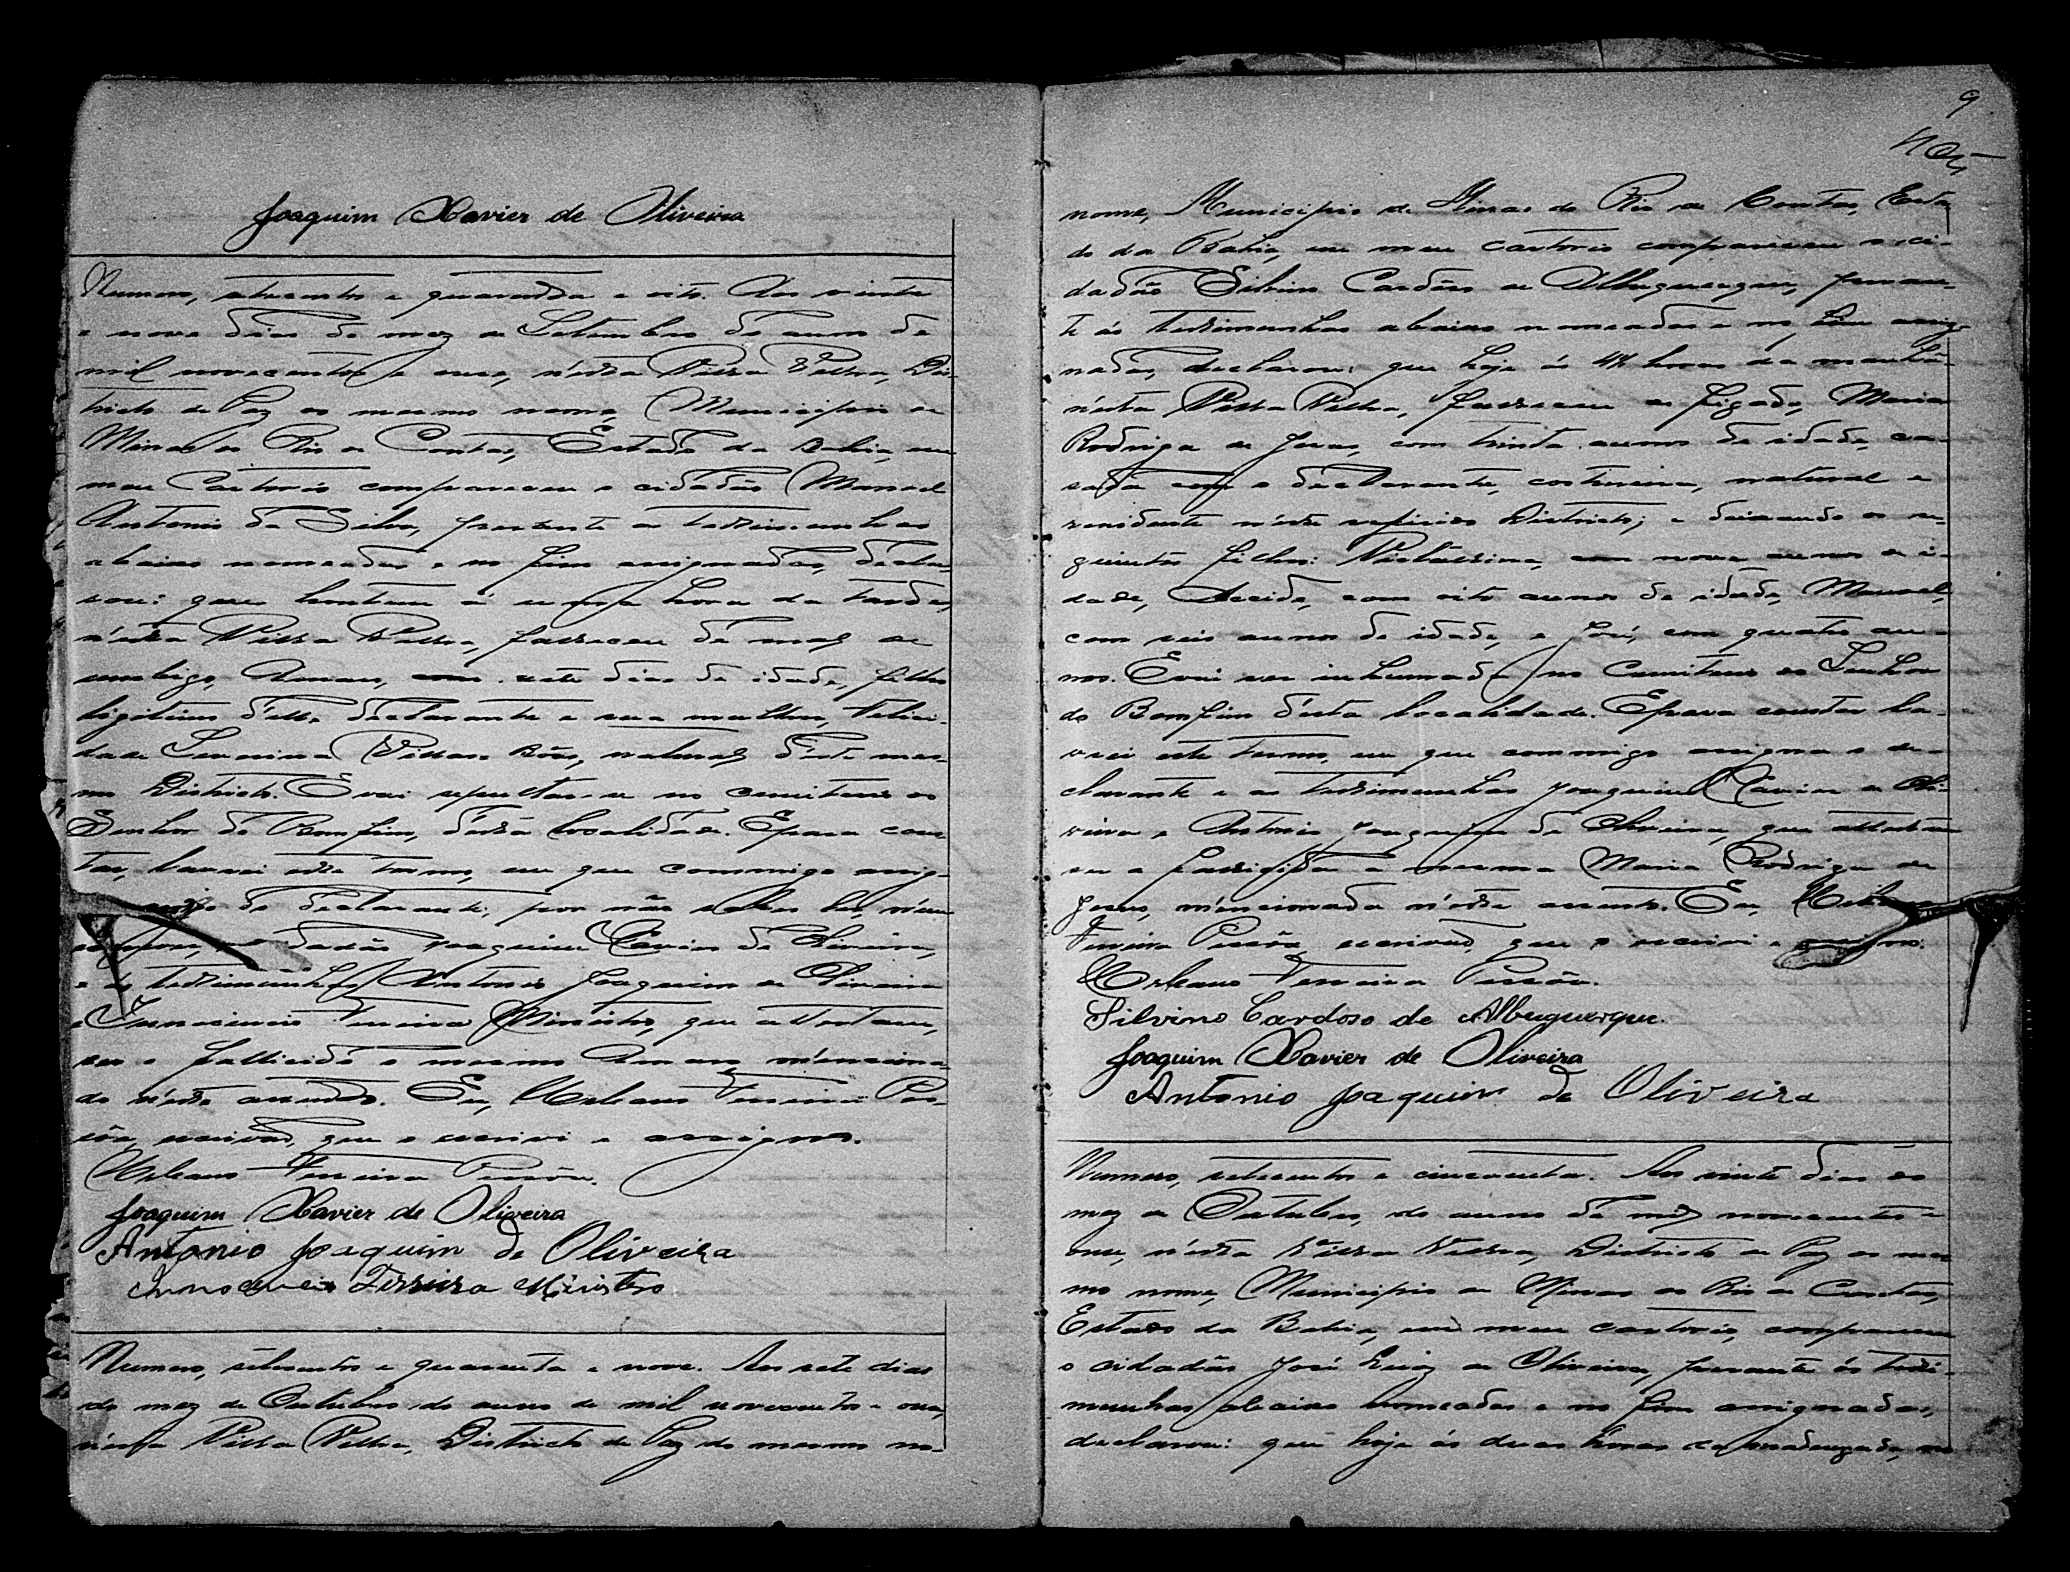 Joaquim Xavier de Oliveira
Numero, setecentos e quarenta e oito. Aos vinte
e nove dias do mez de Setembro do anno de
mil novecentos e onze, n'esta Villa Velha, Dis-
tricto de Paz do mesmo nome, Municipio de
Minas do Rio de Contas, Estado da Bahia, em
meu Cartorio compareceu o cidadão Manoel
Antonio da Silva, perante as testemunhas
abaixo nomeadas e no fim assignadas, decla-
rou: que hontem á uma hora da tarde,
n'esta Villa Velha, falleceu de mal de
umbigo, com sete dias de idade, filho
legitimo d'elle declarante e sua mulher, Felici-
dade Villas Bôas, natural d'este mes-
mo Districto. E vai sepultar-se no cemiterio do
Senhor do Bomfim, d'esta localidade. E para cons-
tar, lavrei este termo, em que commigo assig-
do declarante, por não saber ler, nem
Joaquim Xavier de Oliveira,
e as testemunhas Antonio Joaquim de Oliveira
e Innocencio Ferreira Ministro, que attestam,
ser o fallecido o mesmo menciona-
do n'este assento. Eu, Ferreira Pes-
sôa, escrivão, que o escrevi e assigno.
Ferreira Pessôa.
Joaquim Xavier de Oliveira
Antonio Joaquim de Oliveira
Innocencio Ferreira Ministro
Numero, setecentos e quarenta e nove. Aos sete dias
do mez de Outubro do anno de mil novecentos e onze,
n'esta Villa Velha, Districto de Paz do mesmo no-
9
nome, Municipio de Minas do Rio de Contas, Esta-
do da Bahia, em meu cartorio compareceu o ci-
dadão Silvino Cardoso de Albuquerque, peran-
te ás testemunhas abaixo nomeadas e no fim assig-
nadas, declarou: que hoje ás horas da manhã
n'esta Villa Velha, falleceu de figado, Maria
Rodrigues de Jesus, com trinta annos de idade, ca-
sada com o declarante, costureira, natural e
residente n'este referido Districto; e deixando os se-
guintes filhos: com nove annos de i-
dade, com oito annos de idade, Manoel,
com seis annos de idade, e José, com quatro an-
nos. E vai ser inhumada no Cemiterio do Senhor
do Bomfim d'esta localidade. E para constar la-
vrei este termo, em que commigo assigna o de-
clarante e as testemunhas Joaquim Xavier de Oli-
veira e Antonio Joaquim de Oliveira, que attestam
ser a fallecida a mesma Maria Rodrigues de
Jesus, mencionada n'este assento. Eu,
Ferreira Pessôa, escrivão, que o escrevi e assigno.
Ferreira Pessôa.
Silvino Cardoso de Albuquerque.
Joaquim Xavier de Oliveira
Antonio Joaquim de Oliveira
Numero, setecentos e cincoenta. Aos vinte dias do
mez de Outubro, do anno de mil novecentos e
onze, n'esta Villa Velha, Districto de Paz do mes-
mo nome, Municipio de Minas do Rio de Contas,
Estado da Bahia, em meu cartorio, compareceu
o cidadão José Luiz de Oliveira, perante ás teste-
munhas abaixo nomeadas e no fim assignadas,
declarou: que hoje ás duas horas da madrugada, no